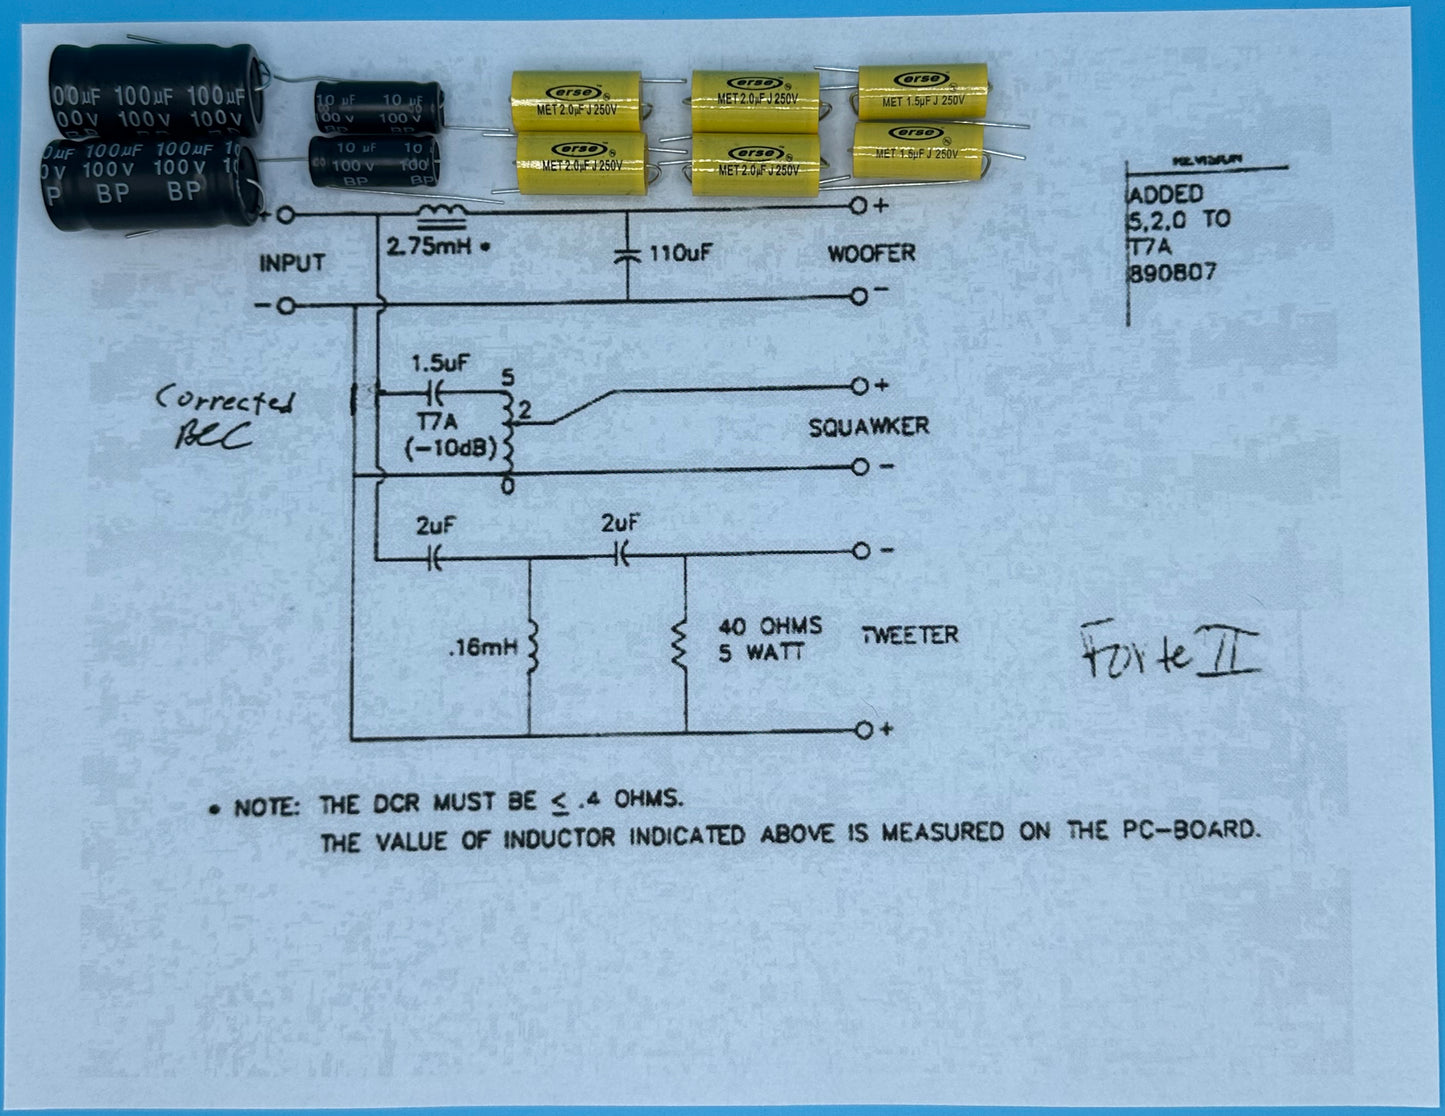 00µF 100µF 100µF
00V 100V 100V
BP
0µF 100µF 100µF 10
0V 100V 100V 10
P BP BP
10 µF 10 µF
100V 100V
BP BP
10 µF 10
100V 100
BP BP
erse
MET 2.0µF J 250V
erse
MET 2.0µF J 250V
erse
MET 2.0µF J 250V
erse
MET 2.0µF J 250V
erse
MET 1.5µF J 250V
erse
MET 1.5µF J 250V
REVISION
ADDED
5,2,0 TO
T7A
890807
+
INPUT
−
2.75mH •
110uF
+
WOOFER
−
Corrected
BEC
1.5uF
T7A
(−10dB)
5
2
0
+
SQUAWKER
−
2uF
2uF
−
.16mH
40 OHMS
5 WATT
TWEETER
+
Forte II
• NOTE: THE DCR MUST BE ≤ .4 OHMS.
THE VALUE OF INDUCTOR INDICATED ABOVE IS MEASURED ON THE PC−BOARD.